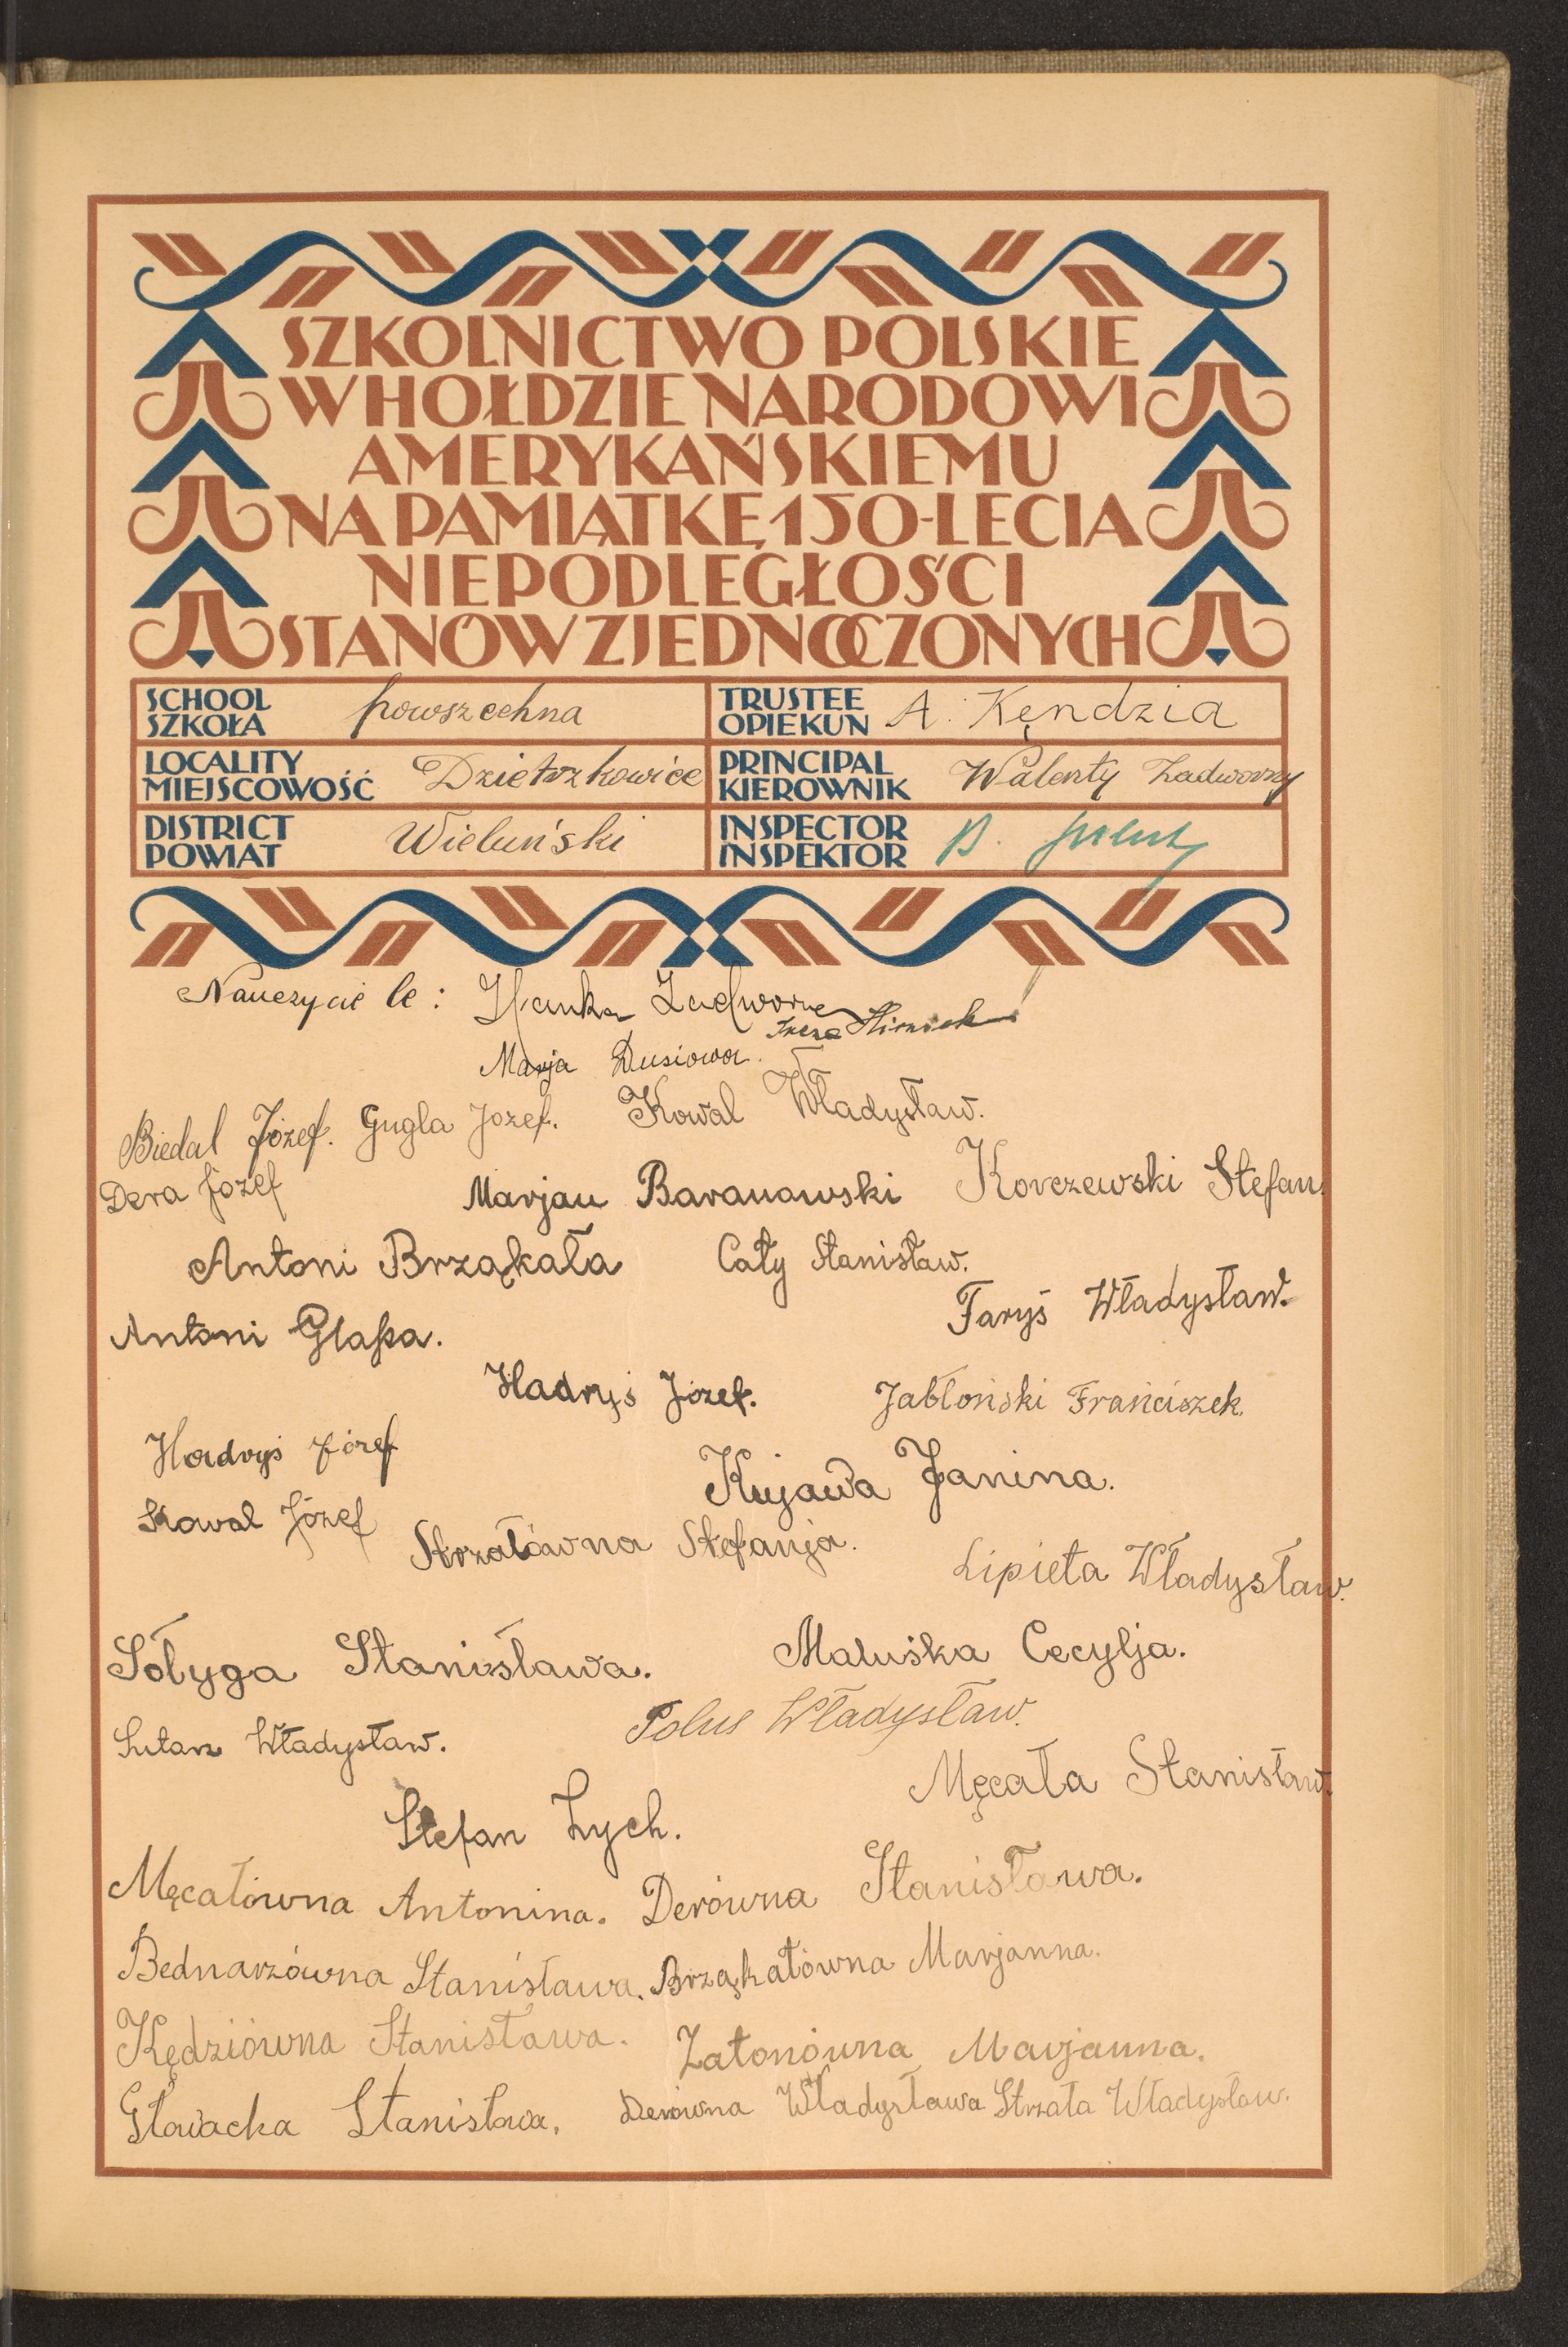 SZKOLNICTWO POLSKIE
W HOŁDZIE NARODOWI
AMERYKAŃSKIEMU
NA PAMIĄTKĘ 150-LECIA
NIEPODLEGŁOŚCI
STANÓW ZJEDNOCZONYCH
SCHOOL
SZKOŁA powszechna
TRUSTEE
OPIEKUN A. Kęndzia
LOCALITY
MIEJSCOWOŚĆ Dzietrzkowice
PRINCIPAL
KIEROWNIK Walenty Zadworny
DISTRICT
POWIAT Wieluński
INSPECTOR
INSPEKTOR
Nauczyciele: Hanka
Marja Dusiowa.
Biedal Józef. Gugla Jozef. Kowal Władysław.
Dera Józef Marjan Baranowski Korczewski Stefan.
Antoni Brząkała Cały Stanisław.
Antoni Glapa. Faryś Władysław.
Hadryś Józef. Jabłoński Franciszek.
Hadryś Józef Kujawa Janina.
Kowal Józef Strzałówna Stefanja. Lipieta Władysław.
Sołyga Stanisława. Maluśka Cecylja.
Władysław. Polus Władysław.
Męcała Stanisław.
Stefan Zych.
Męcałówna Antonina. Derówna Stanisława.
Bednarzówna Stanisława. Brząkałówna Marjanna.
Kędziówna Stanisława. Zatonówna Marjanna.
Głowacka Stanisława. Derówna Władysława Strzała Władysław.